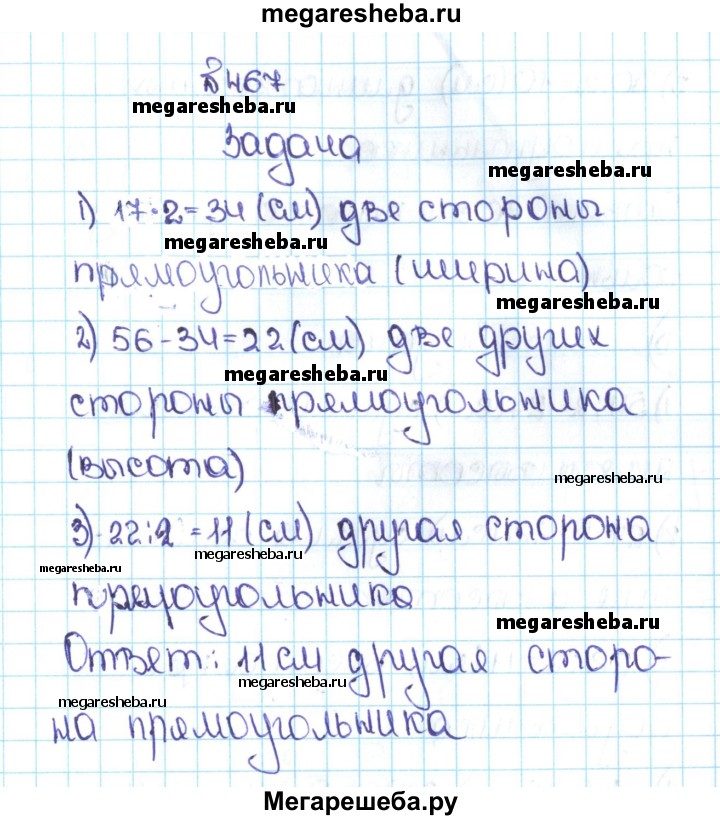 megaresheba.ru
№467
megaresheba.ru
Задача
megaresheba.ru
1) 17·2=34(см) две стороны
megaresheba.ru
прямоугольника (ширина)
megaresheba.ru
2) 56-34=22(см) две других
megaresheba.ru
стороны прямоугольника
(высота)
megaresheba.ru
3) 22:2=11(см) другая сторона
megaresheba.ru
megaresheba.ru
прямоугольника
megaresheba.ru
Ответ: 11см другая сторо-
megaresheba.ru
megaresheba.ru
на прямоугольника
Мегарешеба.ру